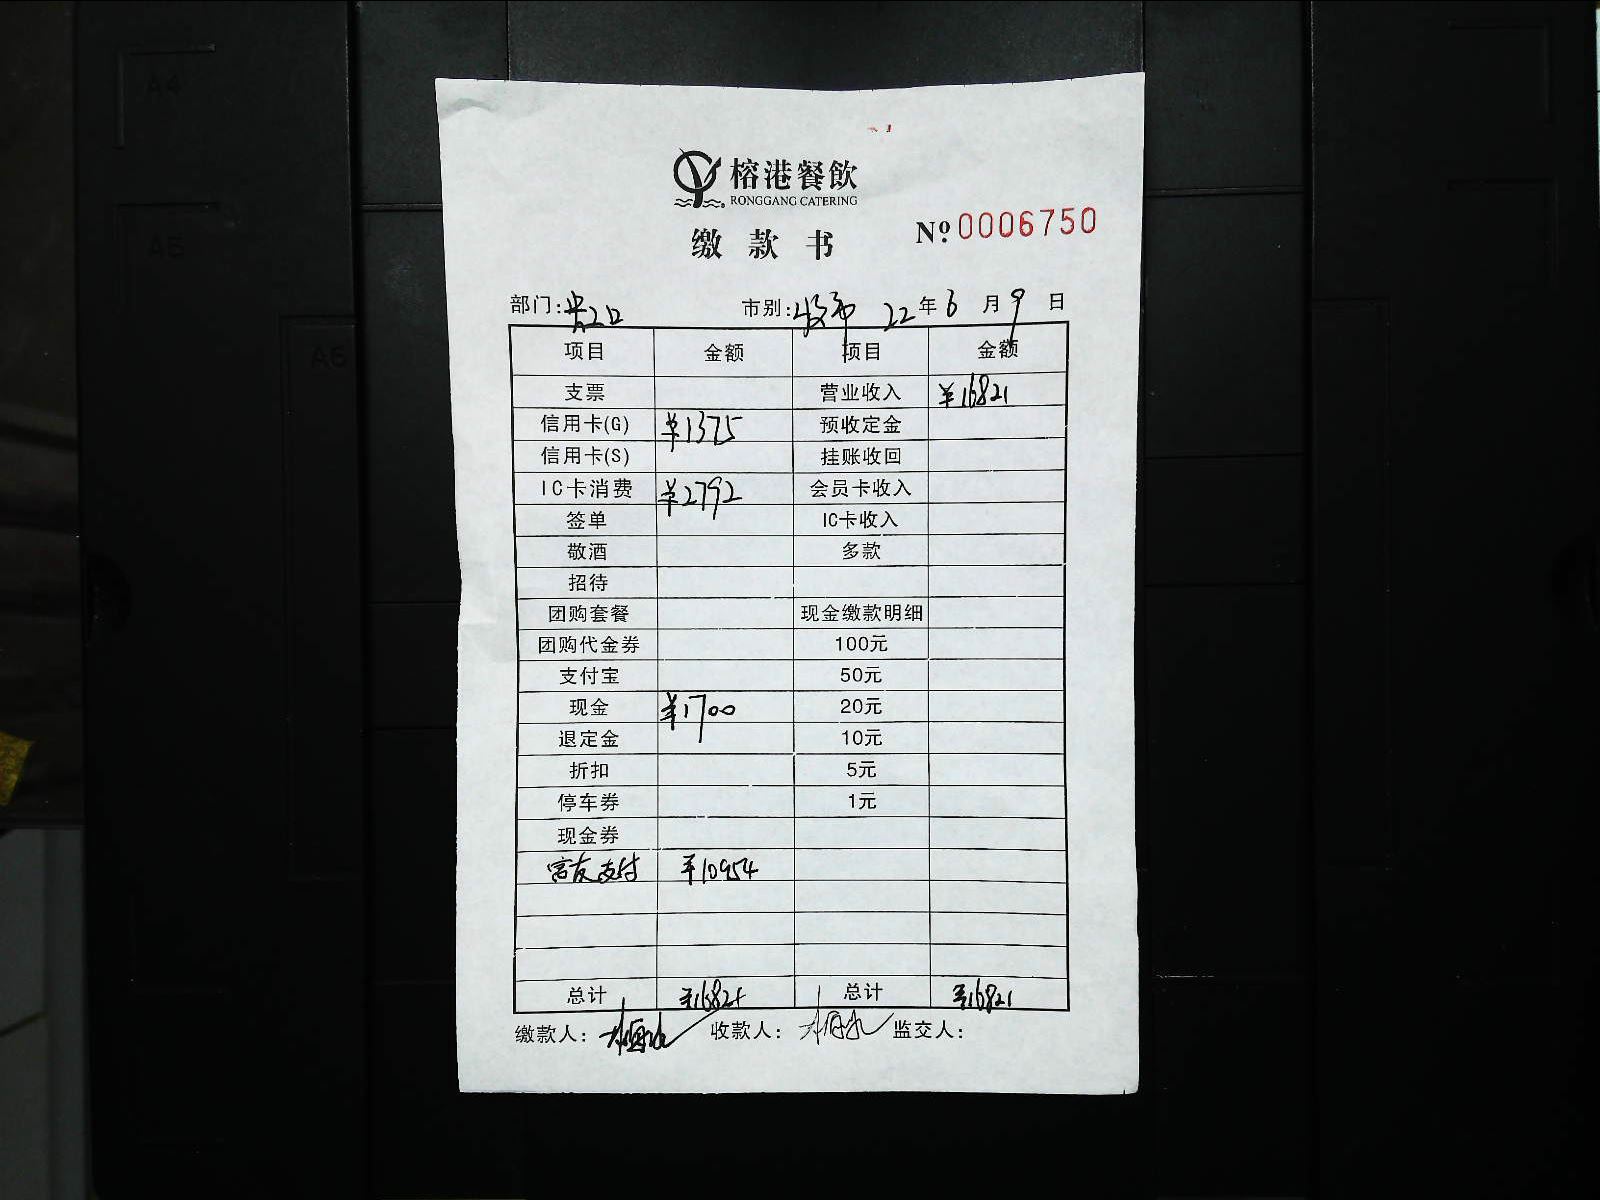 A4
A5
A6
榕港餐飲
RONGGANG CATERING
缴款书
№ 0006750
部门: 市别: 22年6月9日
项目 金额 项目 金额
支票 营业收入 ¥16821
信用卡(G) ¥1375 预收定金
信用卡(S) 挂账收回
IC卡消费 ¥2792 会员卡收入
签单 IC卡收入
敬酒 多款
招待
团购套餐 现金缴款明细
团购代金券 100元
支付宝 50元
现金 ¥1700 20元
退定金 10元
折扣 5元
停车券 1元
现金券
支付 ¥10954
总计 ¥16821 总计 ¥16821
缴款人: 收款人: 监交人: